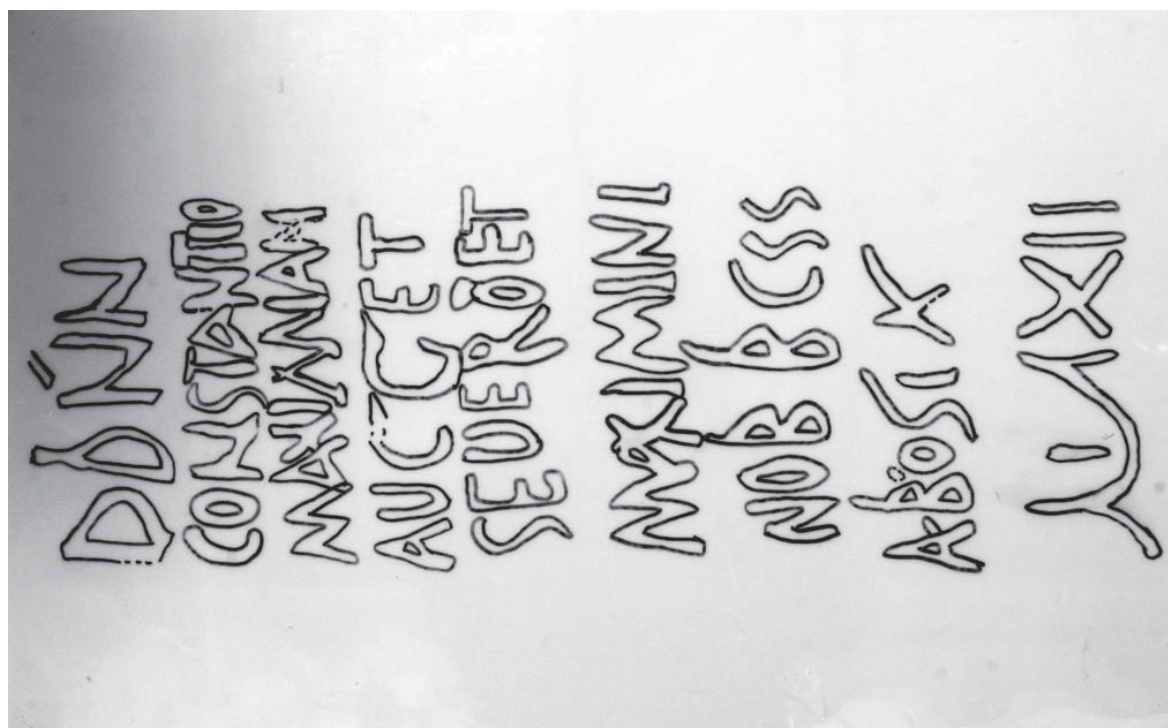 DD NN
CONSTANTIO
MAXIMIANI
AUGG ET
SEUERO ET
MAXIMINI
NOBB CSS
M XII